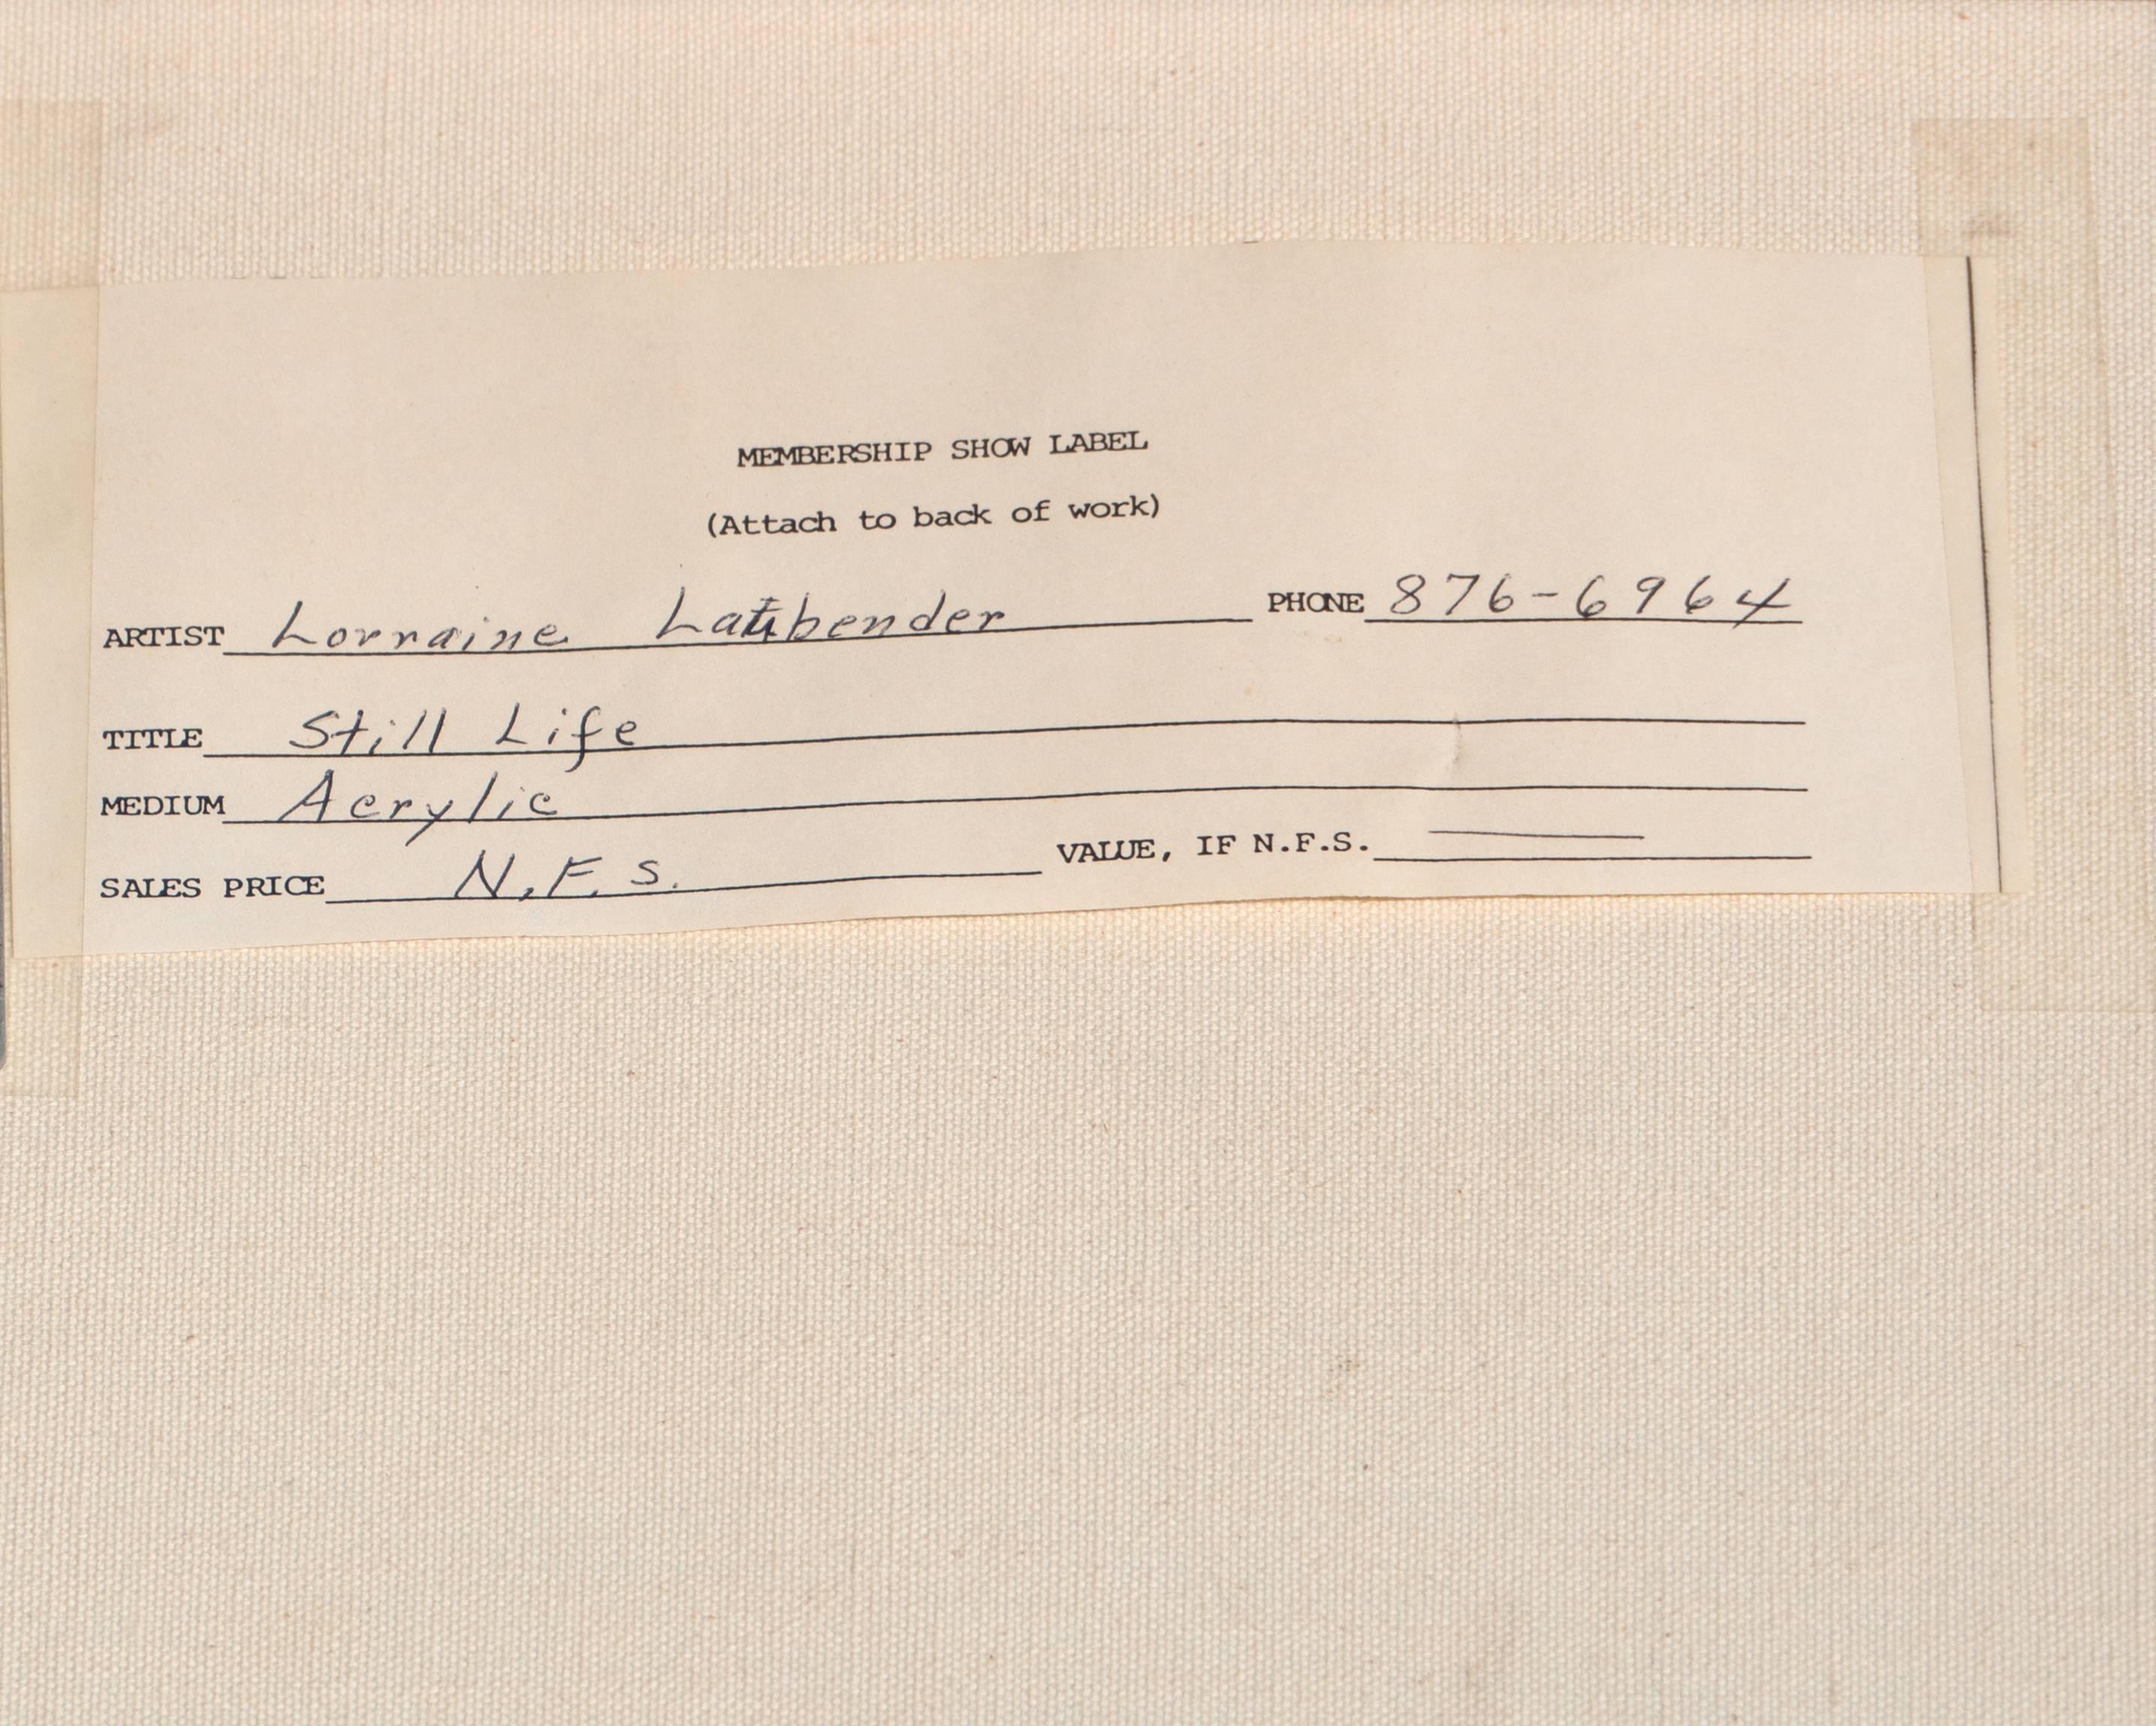 MEMBERSHIP SHOW LABEL
(Attach to back of work)
ARTIST Lorraine Laubender PHONE 876-6964
TITLE Still Life
MEDIUM Acrylic
SALES PRICE N.F.S. VALUE, IF N.F.S. —